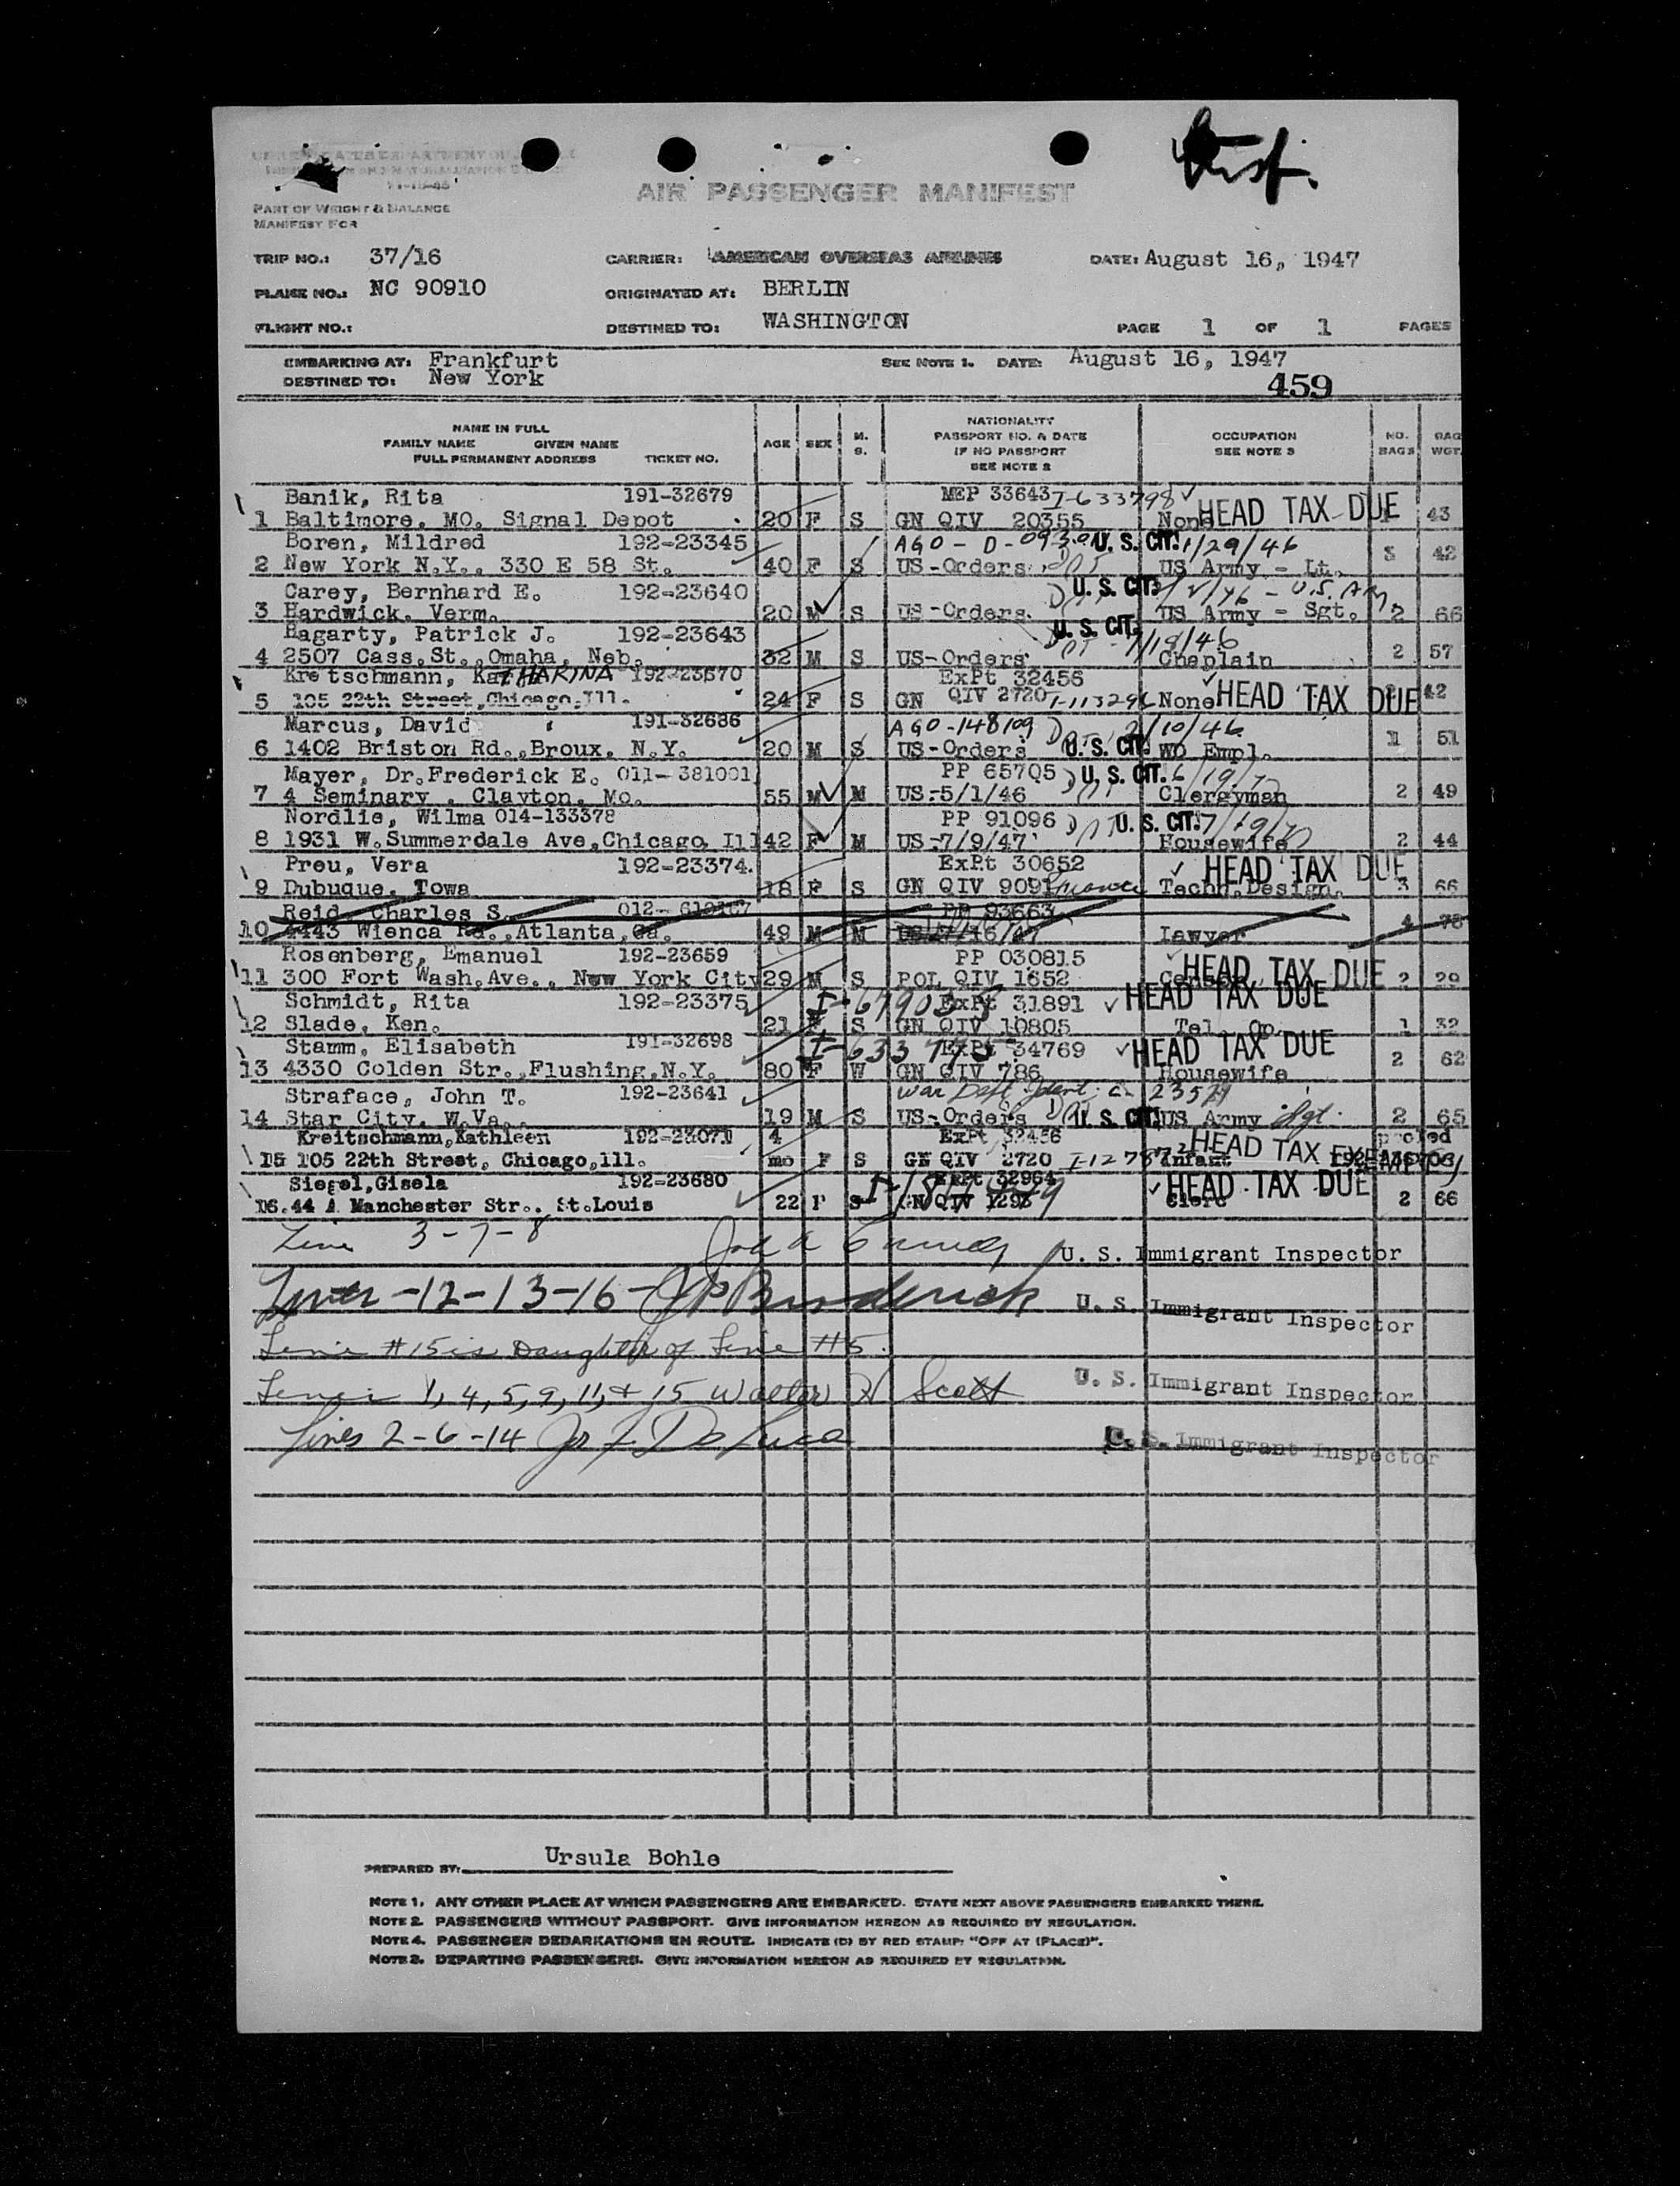 AIR PASSENGER MANIFEST
PART OF WEIGHT & BALANCE
MANIFEST FOR
TRIP NO.: 37/16 CARRIER: AMERICAN OVERSEAS AIRLINES DATE: August 16, 1947
PLANE NO.: NC 90910 ORIGINATED AT: BERLIN
FLIGHT NO.: DESTINED TO: WASHINGTON PAGE 1 OF 1 PAGES
EMBARKING AT: Frankfurt SEE NOTE 1. DATE: August 16, 1947
DESTINED TO: New York 459
NAME IN FULL
FAMILY NAME GIVEN NAME
FULL PERMANENT ADDRESS TICKET NO.
AGE SEX M. S.
NATIONALITY
PASSPORT NO. & DATE
IF NO PASSPORT
SEE NOTE 2
OCCUPATION
SEE NOTE 3
NO. BAGS BAG WGT.
Banik, Rita 191-32679 MEP 33643 I-633798
1 Baltimore. MO. Signal Depot 20 F S GN QIV 20355 None HEAD TAX DUE 43
Boren, Mildred 192-23345 AGO - D - U. S. CIT. 1/29/46
2 New York N.Y., 330 E 58 St. 40 F S US-Orders US Army - Lt. 3 42
Carey, Bernhard E. 192-23640 U. S. CIT.
3 Hardwick. Verm. 20 M S US-Orders. US Army - Sgt. 2 66
Hagarty, Patrick J. 192-23643 U. S. CIT. 1/19/46
4 2507 Cass.St.,Omaha, Neb. 32 M S US-Orders Chaplain 2 57
Kretschmann, KaTHARINA 192-23670 ExPt 32456
5 105 22th Street,Chicago,Ill. 24 F S GN QIV 2720 I-113296 None HEAD TAX DUE 42
Marcus, David 191-32686 AGO-148109 2/10/46
6 1402 Briston Rd.,Broux. N.Y. 20 M S US-Orders U. S. CIT. WD Empl. 1 51
Mayer, Dr.Frederick E. 011-381001 PP 65705 U. S. CIT. 6/19/47
7 4 Seminary . Clayton. Mo. 55 M M US-5/1/46 Clergyman 2 49
Nordlie, Wilma 014-133378 PP 91096 U. S. CIT.
8 1931 W.Summerdale Ave,Chicago, Ill 42 F M US-7/9/47 Housewife 2 44
Preu, Vera 192-23374. ExPt 30652 HEAD TAX DUE
9 Dubuque. Iowa 18 F S GN QIV 9091 Techn.Design. 3 66
Reid, Charles S. PP 93663
10 4443 Wienca Rd.,Atlanta,Ga. 49 M M Lawyer 4
Rosenberg, Emanuel 192-23659 PP 030815
11 300 Fort Wash.Ave., New York City 29 M S POL QIV 1652 HEAD TAX DUE 2 29
Schmidt, Rita 192-23375 ExPt 31891 HEAD TAX DUE
12 Slade, Ken. 21 F S GN QIV 10805 Tel. Op. 1 32
Stamm, Elisabeth 191-32698 ExPt 34769 HEAD TAX DUE
13 4330 Colden Str.,Flushing.N.Y. 80 F W GN QIV 786 Housewife 2 62
Straface, John T. 192-23641 War Dept Ident. 23579
14 Star City. W.Va. 19 M S US-Orders U. S. CIT. US Army Sgt. 2 65
Kreitschmann,Kathleen 192-23071 4 ExPt 32456 HEAD TAX EXEMPT
15 105 22th Street, Chicago,ill. mo F S GN QIV 2720 Infant
Siegel,Gisela 192-23680 ExPt 32964 HEAD TAX DUE
16.44 A Manchester Str.. St.Louis 22 F S GN QIV 1293 Clerc 2 66
Line 3-7-8 U. S. Immigrant Inspector
Lines -12-13-16- JP Broderick U. S. Immigrant Inspector
Line #15 is Daughter of Line #5.
Lines 1, 4, 5, 9, 11, + 15 Walter H Scott U. S. Immigrant Inspector
Lines 2-6-14 Jos F De Luca U. S. Immigrant Inspector
PREPARED BY: Ursula Bohle
NOTE 1. ANY OTHER PLACE AT WHICH PASSENGERS ARE EMBARKED. STATE NEXT ABOVE PASSENGERS EMBARKED THERE.
NOTE 2. PASSENGERS WITHOUT PASSPORT. GIVE INFORMATION HEREON AS REQUIRED BY REGULATION.
NOTE 4. PASSENGER DEBARKATIONS EN ROUTE. INDICATE (D) BY RED STAMP: "OFF AT (PLACE)".
NOTE 3. DEPARTING PASSENGERS. GIVE INFORMATION HEREON AS REQUIRED BY REGULATION.